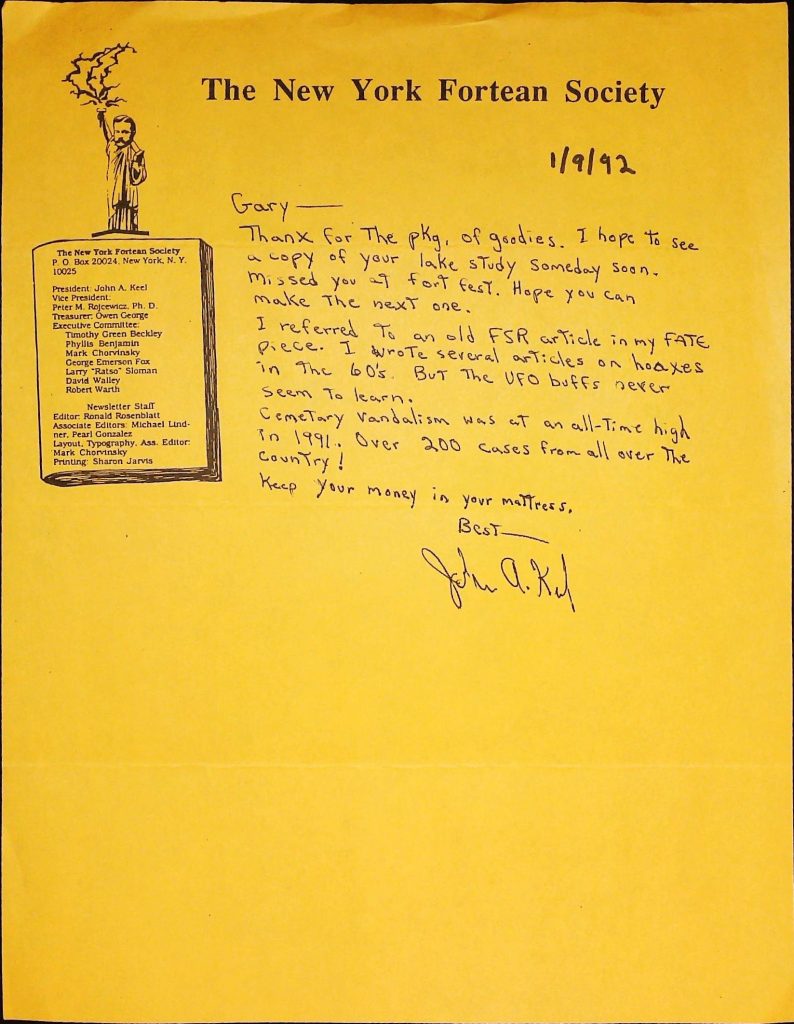 The New York Fortean Society
1/9/92
The New York Fortean Society
P. O. Box 20024, New York, N. Y.
10025
President: John A. Keel
Vice President:
Peter M. Rojcewicz, Ph. D.
Treasurer: Owen George
Executive Committee:
Timothy Green Beckley
Phyllis Benjamin
Mark Chorvinsky
George Emerson Fox
Larry "Ratso" Sloman
David Walley
Robert Warth
Newsletter Staff
Editor: Ronald Rosenblatt
Associate Editors: Michael Lind-
ner, Pearl Gonzalez
Layout, Typography, Ass. Editor:
Mark Chorvinsky
Printing: Sharon Jarvis
Gary —
Thanx for The pkg. of goodies. I hope to see
a copy of your lake study someday soon.
Missed you at fort fest. Hope you can
make the next one.
I referred to an old FSR article in my FATE
piece. I wrote several articles on hoaxes
in the 60's. But the UFO buffs never
seem to learn.
Cemetary vandalism was at an all-time high
in 1991. Over 200 cases from all over the
country!
Keep your money in your mattress.
Best —
John A. Keel